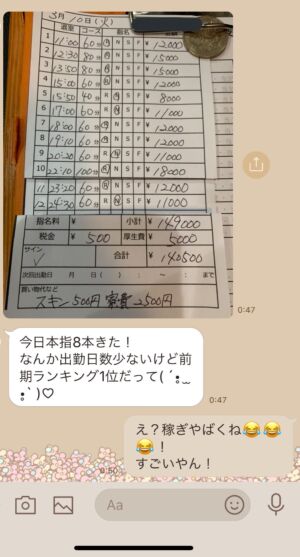 3月10日(火)
選室 コース 指名 金額
1 11:00 60分 N S F ¥ 12000
2 12:30 80分 N S F ¥ 15000
3 13:50 80分 N S F ¥ 15000
4 15:00 60分 N S F ¥ 12000
5 15:50 40分 R N S F ¥ 8000
6 17:00 60分 R N S F ¥ 11000
7 18:00 60分 N S F ¥ 12000
8 19:10 60分 N S F ¥ 12000
9 20:20 60分 R N S F ¥ 11000
10 22:10 100分 N S F ¥ 18000
11 23:20 60分 N S F ¥ 12000
12 24:30 60分 R N S F ¥ 11000
指名料 ¥ 小計 ¥ 149000
税金 ¥ 500 厚生費 ¥ 5000
サイン 合計 ¥ 140500
次回出勤日 月 日( ) : ~ : まで
買い物代など
スキン500円 寮費2500円
0:47
今日本指8本きた!
なんか出勤日数少ないけど前
期ランキング1位だって( ´•̥ ̫ •̥` )♡
0:47
え?稼ぎやばくね😂😂
😂!
すごいやん!
0:50
Aa